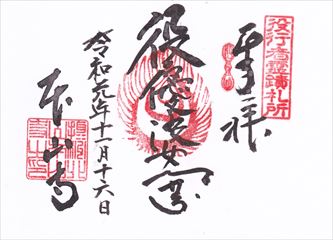 役行者靈蹟札所
奉拝
役優婆塞
令和元年十一月十六日
本山寺